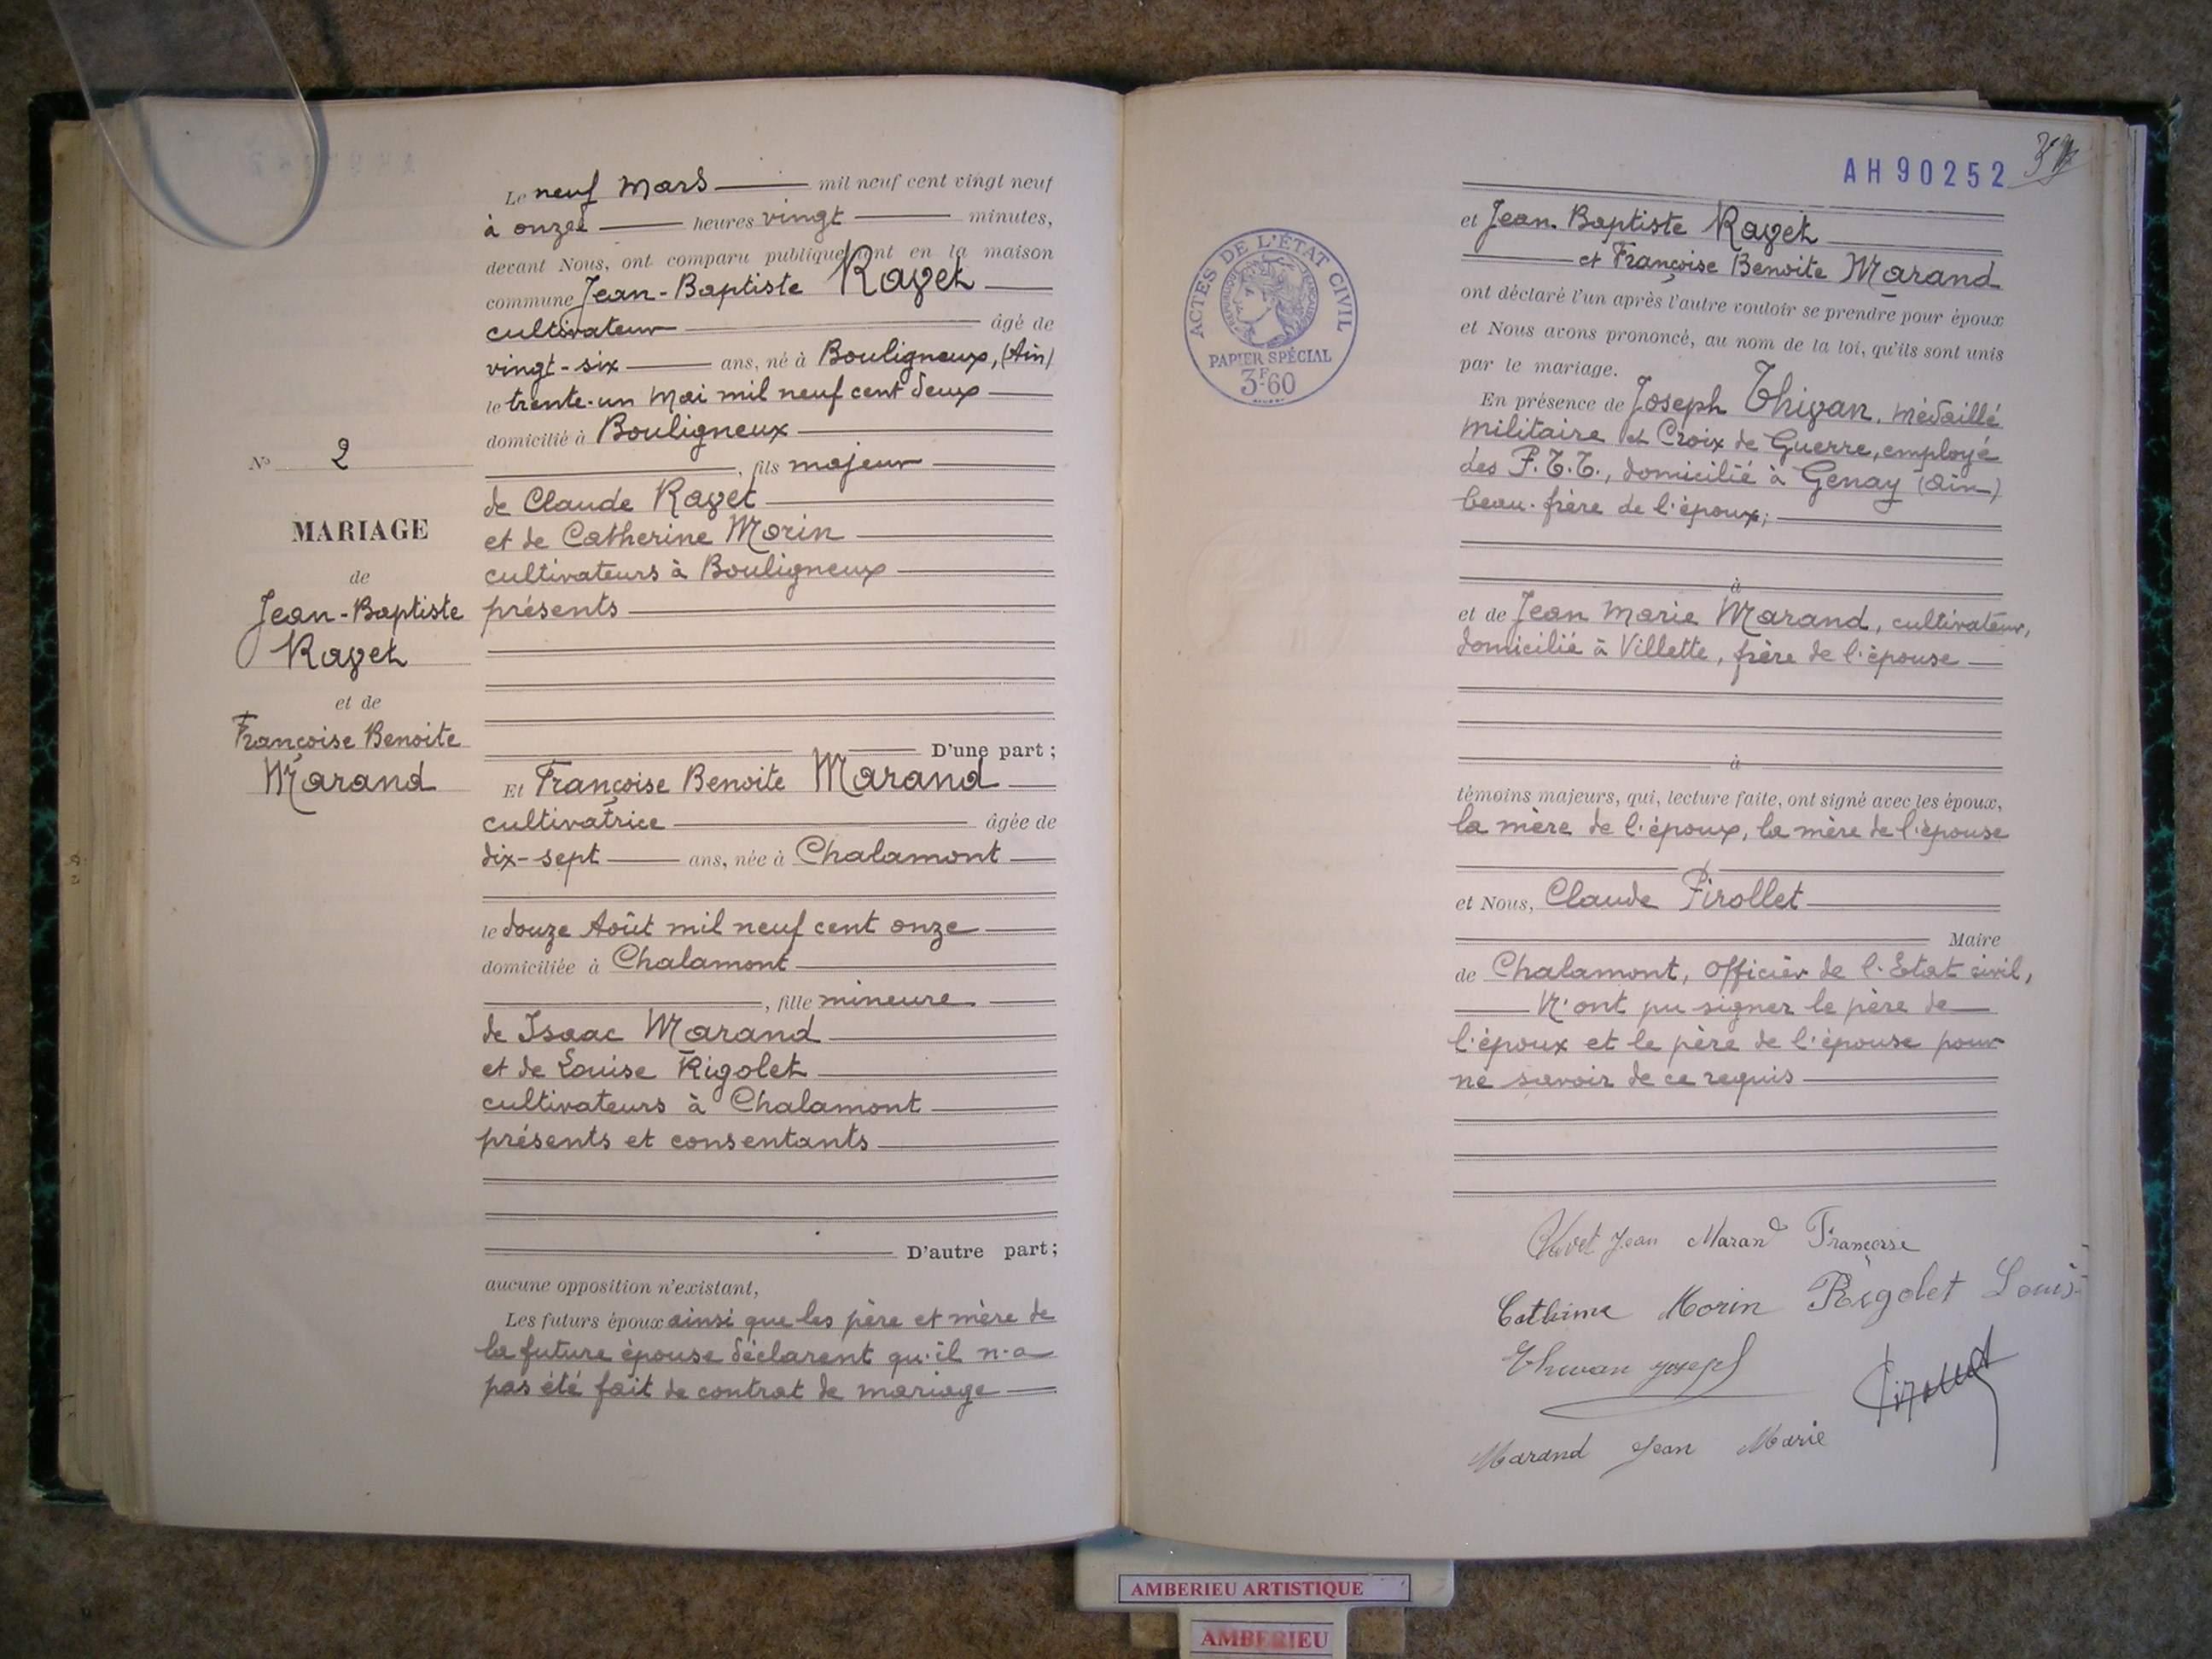 Le neuf Mars mil neuf cent vingt neuf
à onze heures vingt minutes,
devant Nous, ont comparu publiquement en la maison
commune Jean-Baptiste Ravet
cultivateur âgé de
vingt-six ans, né à Bouligneux, (Ain)
le trente-un Mai mil neuf cent deux
domicilié à Bouligneux
, fils majeur
de Claude Ravet
et de Catherine Morin
cultivateurs à Bouligneux
présents
D'une part ;
Et Françoise Benoite Marand
cultivatrice âgée de
dix-sept ans, née à Chalamont
le douze Août mil neuf cent onze
domiciliée à Chalamont
, fille mineure
de Isaac Marand
et de Louise Rigolet
cultivateurs à Chalamont
présents et consentants
D'autre part ;
aucune opposition n'existant,
Les futurs époux ainsi que les père et mère de
la future épouse déclarent qu'il n'a
pas été fait de contrat de mariage
No 2
MARIAGE
de
Jean-Baptiste
Ravet
et de
Françoise Benoite
Marand
AH90252
et Jean-Baptiste Ravet
et Françoise Benoite Marand
ont déclaré l'un après l'autre vouloir se prendre pour époux
et Nous avons prononcé, au nom de la loi, qu'ils sont unis
par le mariage.
En présence de Joseph Thivan, médaillé
militaire et Croix de Guerre, employé
des P.T.T., domicilié à Genay (Ain)
beau-frère de l'époux;
à
et de Jean Marie Marand, cultivateur,
domicilié à Villette, frère de l'épouse
à
témoins majeurs, qui, lecture faite, ont signé avec les époux,
la mère de l'époux, la mère de l'épouse
et Nous, Claude Pirollet
Maire
de Chalamont, Officier de l'Etat civil,
N'ont pu signer le père de
l'époux et le père de l'épouse pour
ne savoir de ce requis
Ravet Jean Marand Françoise
Catherine Morin Rigolet Louis
Thivan Joseph
Pirollet
Marand Jean Marie
ACTES DE L'ÉTAT CIVIL
RÉPUBLIQUE FRANÇAISE
PAPIER SPÉCIAL
3F60
AMBERIEU ARTISTIQUE
AMBERIEU